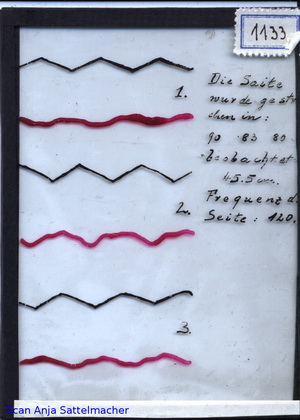 1133
1.
Die Saite
wurde gestri
chen in:
90 83 80
beobachtet
45.5 cm.
2.
Frequenz d.
Seite: 120.
3.
Scan Anja Sattelmacher